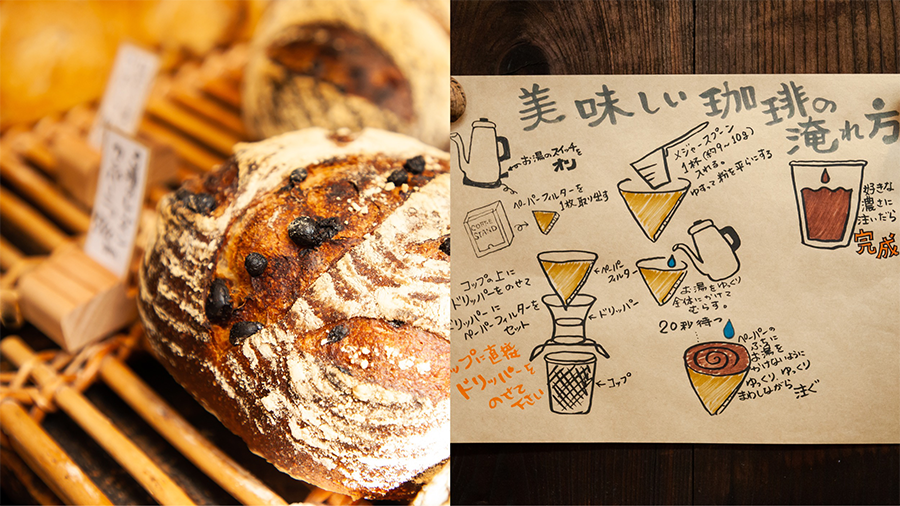 美味しい珈琲の
淹れ方
お湯のスイッチを
オン
ペーパーフィルターを
1枚取り出す
COFFEE
STAND
メジャースプーン
1杯(約9~10g)
入れる。
ゆすって粉を平らにする
コップの上に
ドリッパーをのせて
ドリッパーに
ペーパーフィルターを
セット
ペーパー
フィルター
ドリッパー
コップ
ップに直接
ドリッパーを
のせて
下さい
お湯をゆっくり
全体にかけて
むらす。
20秒待つ
ペーパーの
ふちに
お湯を
かけないように
ゆっくり、ゆっくり
まわしながら
注ぐ
好きな
濃さに
注いだら
完成